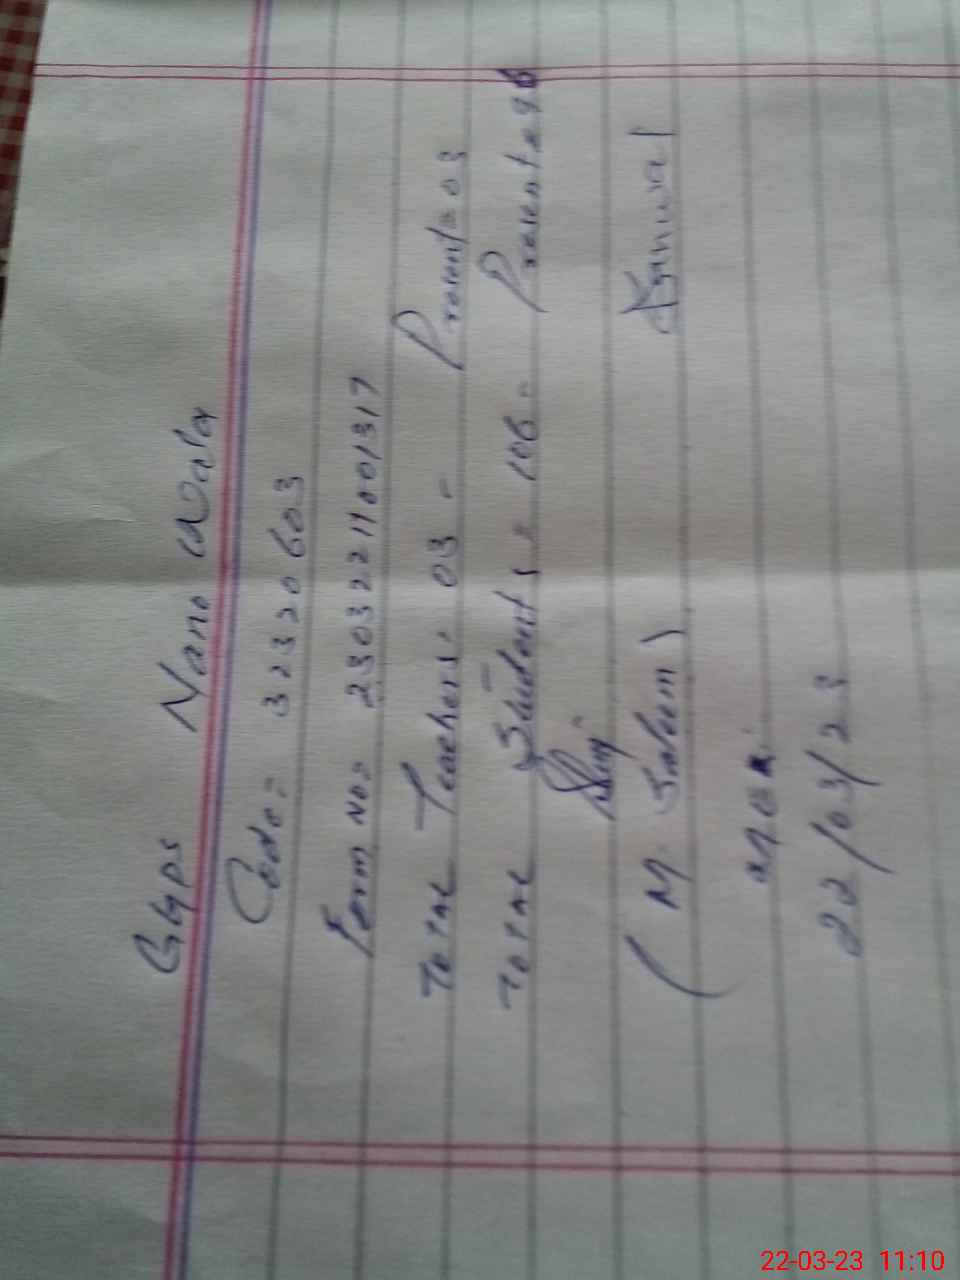 GGPS Nano Wala
Code = 32320603
Form No = 23032211001317
TOTAL Teachers = 03 - Present = 03
TOTAL Students = 106 - Present = 96
(M. Saleem)
22/03/23
22-03-23 11:10